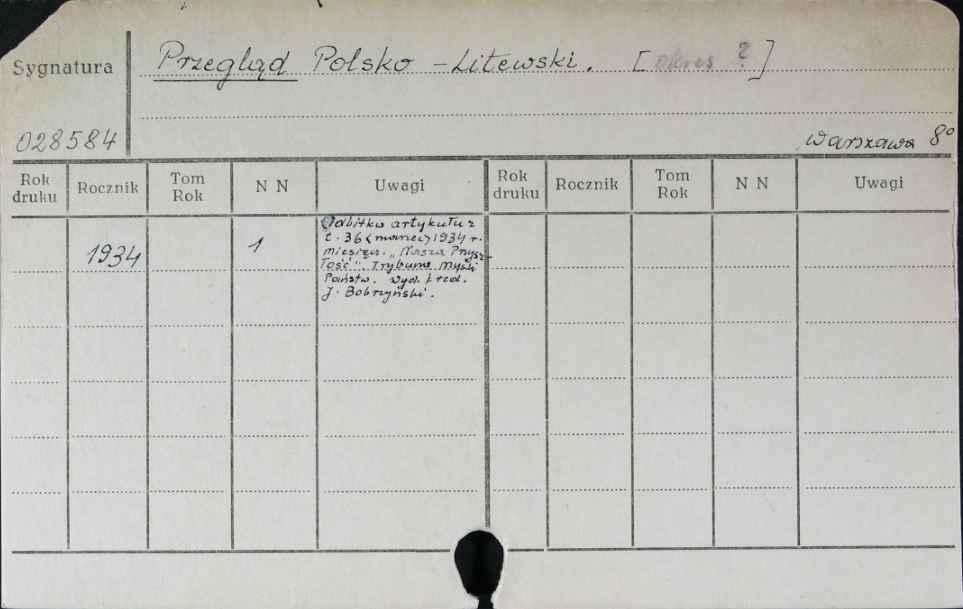 Sygnatura
Przegląd Polsko-Litewski. [okres ?]
028584
Warszawa 8°
Rok druku
Rocznik
Tom Rok
N N
Uwagi
Rok druku
Rocznik
Tom Rok
N N
Uwagi
1934
1
Odbitka artykułu z
t. 36 <marzec> 1934 r.
miesięcz. „Nasza Przysz-
łość". Trybuna Myśli
Państw. wyd. i red.
J. Bobrzyński.